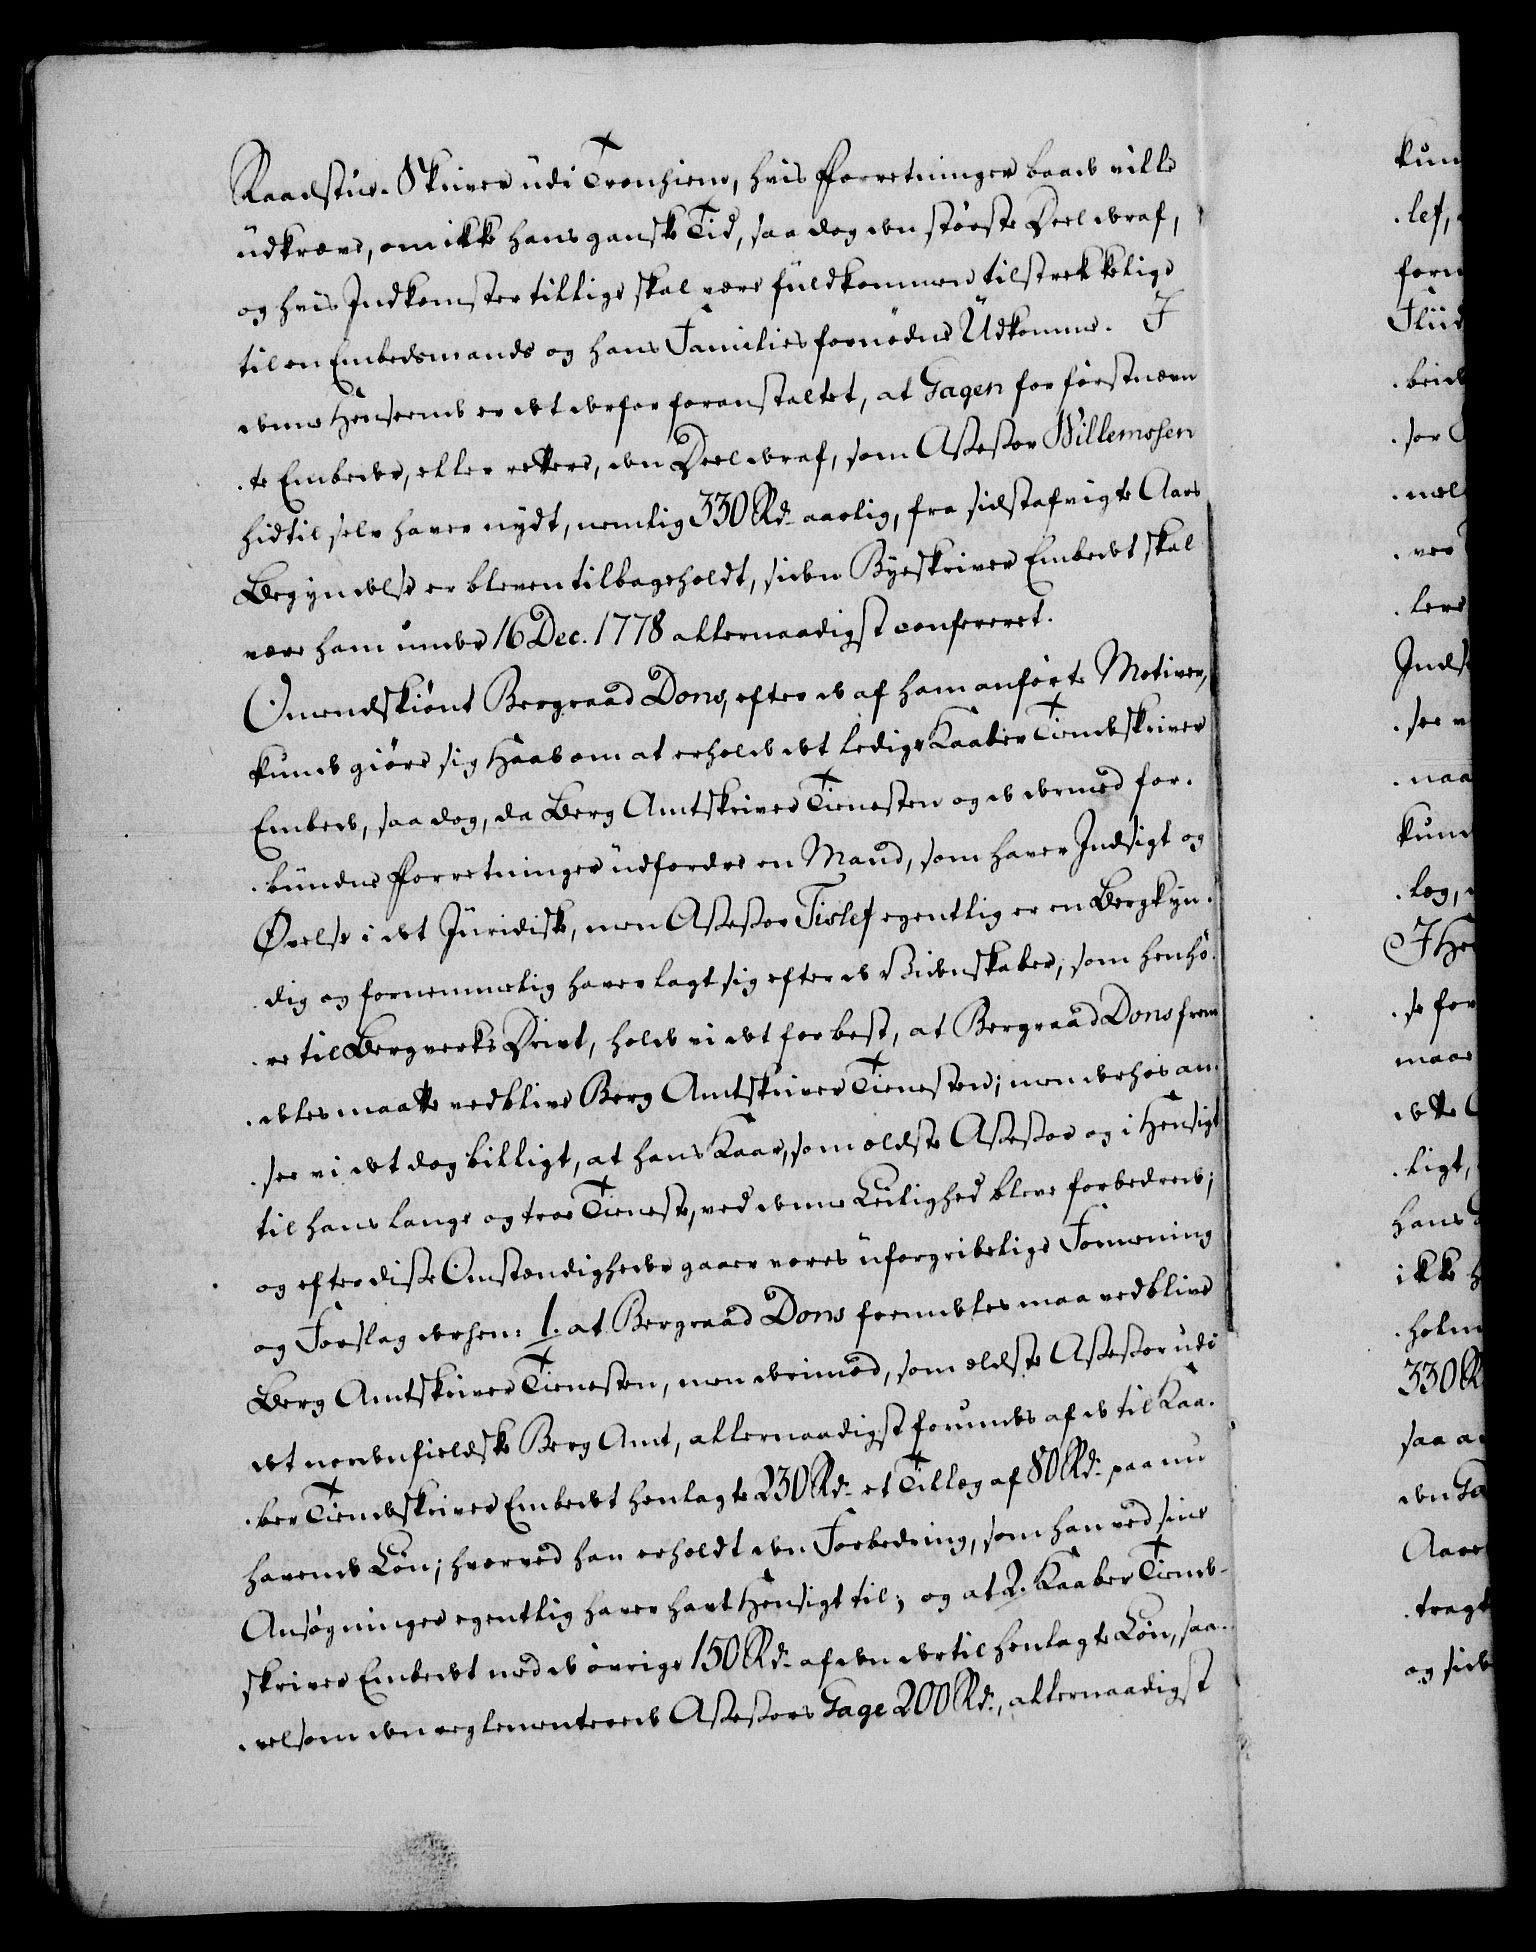 Raadstue-Skriver udi Tronhiem, hvis Forretninger baade ville
udkræve, om ikke hans ganske Tid, saa dog den største Deel deraf,
og hvis Indkomster tillige skal være fuldkommen tilstrekkelige
til en Embedsmands og hans Families fornødne Udkomme. I
denne Henseende er det derfor foranstaltet, at Gagen for førstnævn
te Embede, eller rettere, den Deel deraf, som Assessor Willemssen
hidtil selv haver nydt, nemlig 330 Rd. aarlig, fra sidstafvigte Aars
Begyndelse er bleven tilbageholdt, siden Byeskriver Embedet skal
være ham under 16 Dec. 1778 allernaadigst confereret.
Omendskiønt Bergraad Dons, efter de af ham anførte Motiver,
kunde giøre sig Haab om at erholde det ledige Kaaber Tiendeskriver
Embede, saa dog, da Berg Amtskriver Tienesten og de dermed for-
bundne Forretninger udfordre en Mand, som haver Indsigt og
Øvelse i det Juridiske, men Assessor Tislef egentlig er en Bergkyn-
dig og fornemmelig haver lagt sig efter de Videnskaber, som henhø-
re til Bergverks Drivt, holde vi det for best, at Bergraad Dons frem
deles maatte vedblive Berg Amtskriver Tienesten; men derhos an-
see vi det dog billigt, at hans Kaar, som ældste Assessor og i Hensigt
til hans lange og troe Tieneste, ved denne Leilighed bleve forbedrede;
og efter disse Omstændigheder gaaer vores uforgribelige Formening
og Forslag derhen: 1. at Bergraad Dons fremdeles maa vedblive
Berg Amtskriver Tienesten, men derimod, som ældste Assessor udi
det nordenfieldske Berg Amt, allernaadigst forundes af de til Kaa-
ber Tiendeskriver Embedet henlagte 230 Rd. et Tillæg af 80 Rd. paa nu
havende Løn; hvorved han erholdt den Forbedring, som han ved sine
Ansøgninger egentlig haver havt Hensigt til; og at 2. Kaaber Tiende-
skriver Embedet med de øvrige 150 Rd. af den dertil henlagte Løn, saa-
velsom den reglementerede Assessors Gage 200 Rd., allernaadigst